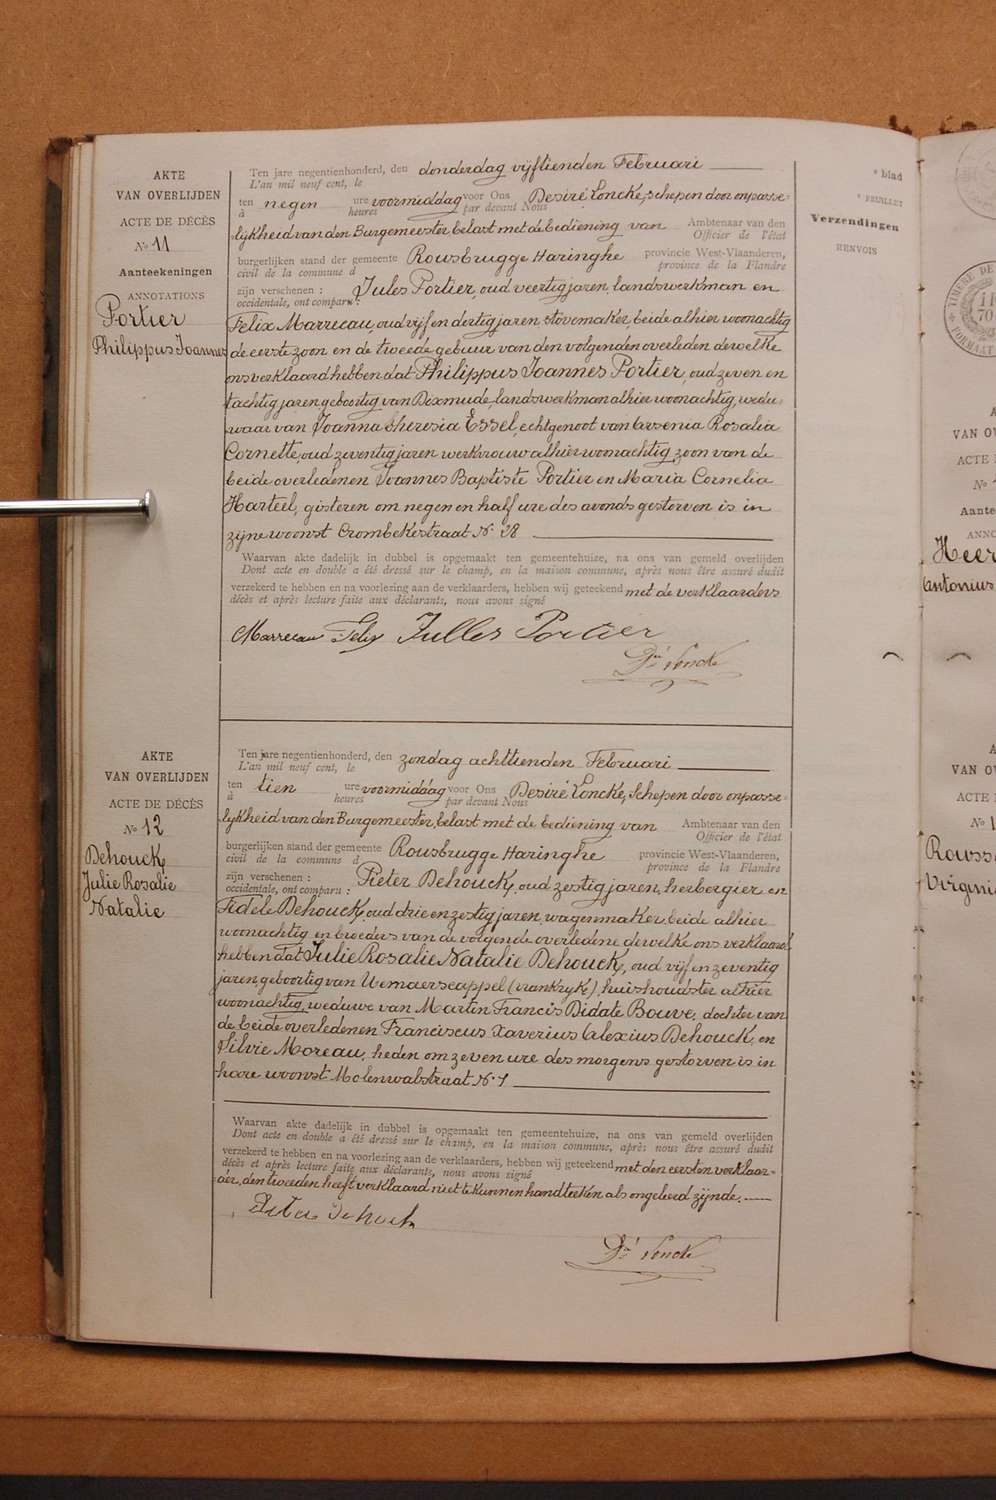 AKTE
VAN OVERLIJDEN
ACTE DE DÉCÈS
No 11
Aanteekeningen
ANNOTATIONS
Portier
Philippus Joannes
Ten jare negentienhonderd, den donderdag vijftienden Februari
L'an mil neuf cent, le
ten negen ure voormiddag voor Ons Desiré Loncke, schepen door onpasse-
à heures par devant Nous
lijkheid van den Burgemeester belast met de bediening van Ambtenaar van den
Officier de l'état
burgerlijken stand der gemeente Rousbrugge Haringhe provincie West-Vlaanderen,
civil de la commune d province de la Flandre
zijn verschenen : Jules Portier, oud veertig jaren, landswerkman en
occidentale, ont comparu :
Felix Marrecau, oud vijf en dertig jaren, stovemaker, beide alhier woonachtig
de eerste zoon en de tweede gebuur van den volgenden overleden dewelke
ons verklaard hebben dat Philippus Joannes Portier, oud zeven en
tachtig jaren geboortig van Dixmude, landswerkman alhier woonachtig, wedu-
waar van Joanna Theresia Essel, echtgenoot van Arsenia Rosalia
Cornette, oud zeventig jaren werkvrouw alhier woonachtig, zoon van de
beide overledenen Joannes Baptiste Portier en Maria Cornelia
Harteel, gisteren om negen en half ure des avonds gestorven is in
zijne woonst Crombekestraat No 28
Waarvan akte dadelijk in dubbel is opgemaakt ten gemeentehuize, na ons van gemeld overlijden
Dont acte en double a été dressé sur le champ, en la maison commune, après nous être assuré dudit
verzekerd te hebben en na voorlezing aan de verklaarders, hebben wij geteekend met de verklaarders
décès et après lecture faite aux déclarants, nous avons signé
Marrecau Felix Jules Portier
Dré Loncke
AKTE
VAN OVERLIJDEN
ACTE DE DÉCÈS
No 12
Dehouck
Julie Rosalie
Natalie
Ten jare negentienhonderd, den zondag achttienden Februari
L'an mil neuf cent, le
ten tien ure voormiddag voor Ons Desiré Loncke, Schepen door onpasse-
à heures par devant Nous
lijkheid van den Burgemeester, belast met de bediening van Ambtenaar van den
Officier de l'état
burgerlijken stand der gemeente Rousbrugge Haringhe provincie West-Vlaanderen,
civil de la commune d province de la Flandre
zijn verschenen : Pieter Dehouck, oud zestig jaren, herbergier en
occidentale, ont comparu :
Fidele Dehouck, oud drie en zestig jaren, wagenmaker beide alhier
woonachtig en broeders van de volgende overledene dewelke ons verklaard
hebben dat Julie Rosalie Natalie Dehouck, oud vijf en zeventig
jaren, geboortig van Uemaerscappel (vrankryk), huishoudster alhier
woonachtig, weduwe van Martin Francis Didate Bouve, dochter van
de beide overledenen Franciscus Xaverius Alexius Dehouck, en
Silvie Moreau, heden om zeven ure des morgens gestorven is in
hare woonst Molenwalstraat No 1
Waarvan akte dadelijk in dubbel is opgemaakt ten gemeentehuize, na ons van gemeld overlijden
Dont acte en double a été dressé sur le champ, en la maison commune, après nous être assuré dudit
verzekerd te hebben en na voorlezing aan de verklaarders, hebben wij geteekend met den eersten verklaar-
décès et après lecture faite aux déclarants, nous avons signé
der, den tweeden heeft verklaard niet te kunnen handteeken als ongeleerd zijnde.
Pieter Dehouck
Dré Loncke
e blad
e FEUILLET
Verzendingen
RENVOIS
VAN OV
ACTE
No
Aante
ANNO
Heer
Antonius
VAN OV
ACTE
No 1
Rouss
Virgini